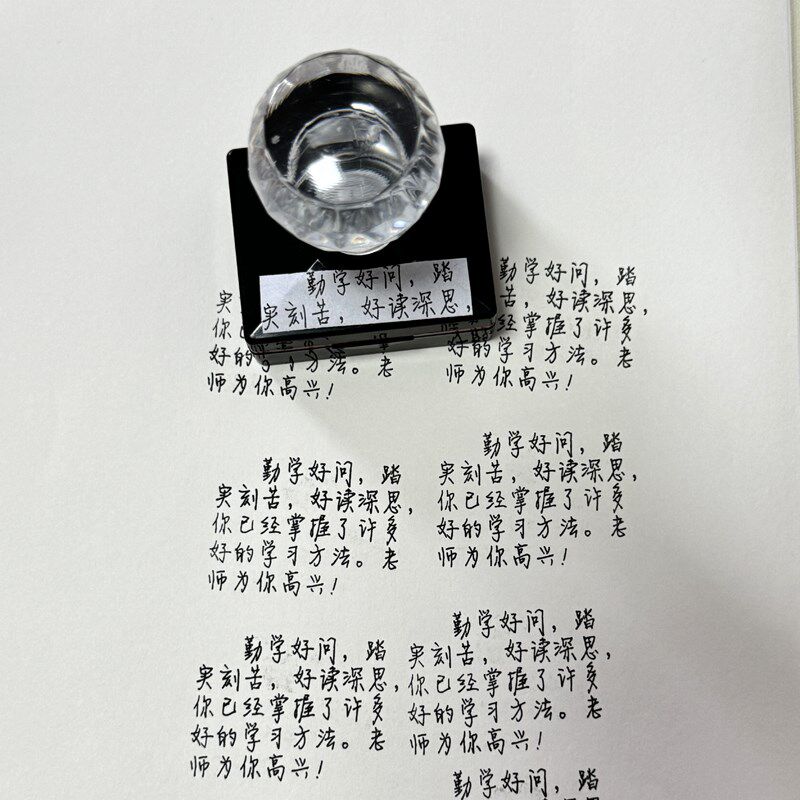 勤学好问，踏
实刻苦，好读深思，
实
你已
好的学习方法。老
师为你高兴！
勤学好问，踏
苦，好读深思，
经掌握了许多
好的学习方法。老
师为你高兴！
勤学好问，踏
实刻苦，好读深思，
你已经掌握了许多
好的学习方法。老
师为你高兴！
勤学好问，踏
实刻苦，好读深思，
你已经掌握了许多
好的学习方法。老
师为你高兴！
勤学好问，踏
实刻苦，好读深思，
你已经掌握了许多
好的学习方法。老
师为你高兴！
勤学好问，踏
实刻苦，好读深思，
你已经掌握了许多
好的学习方法。老
师为你高兴！
勤学好问，踏